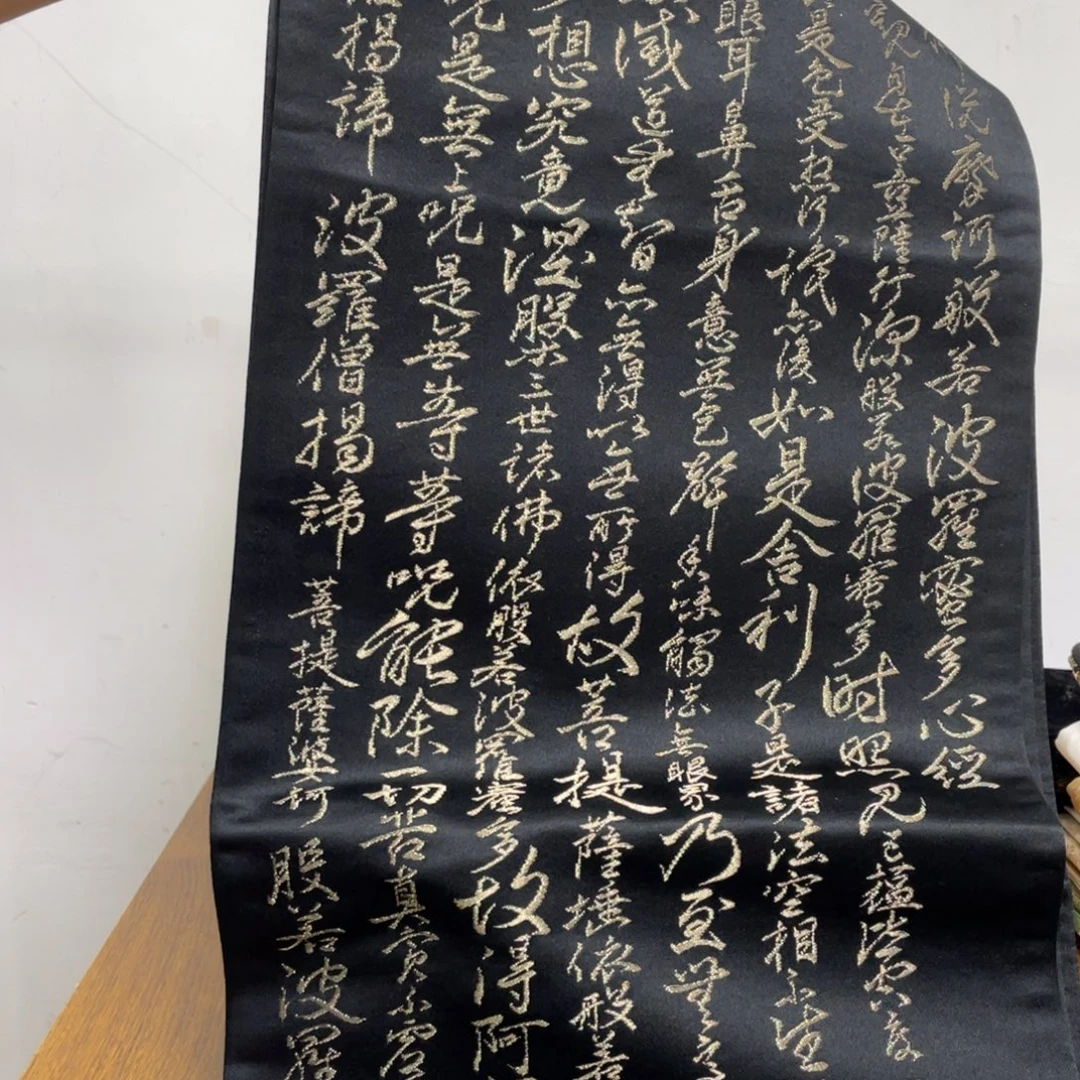 佛說摩訶般若波羅蜜多心經
觀自在菩薩行深般若波羅蜜多時照見五蘊皆空度
是色受想行識亦復如是舍利子是諸法空相不生
眼耳鼻舌身意無色聲香味觸法無眼界乃至無意
滅道無智亦無得以無所得故菩提薩埵依般若
夢想究竟涅般三世諸佛依般若波羅蜜多故得阿
呪是無上呪是無等等呪能除一切苦真實不虛
揭諦波羅僧揭諦菩提薩婆訶般若波羅